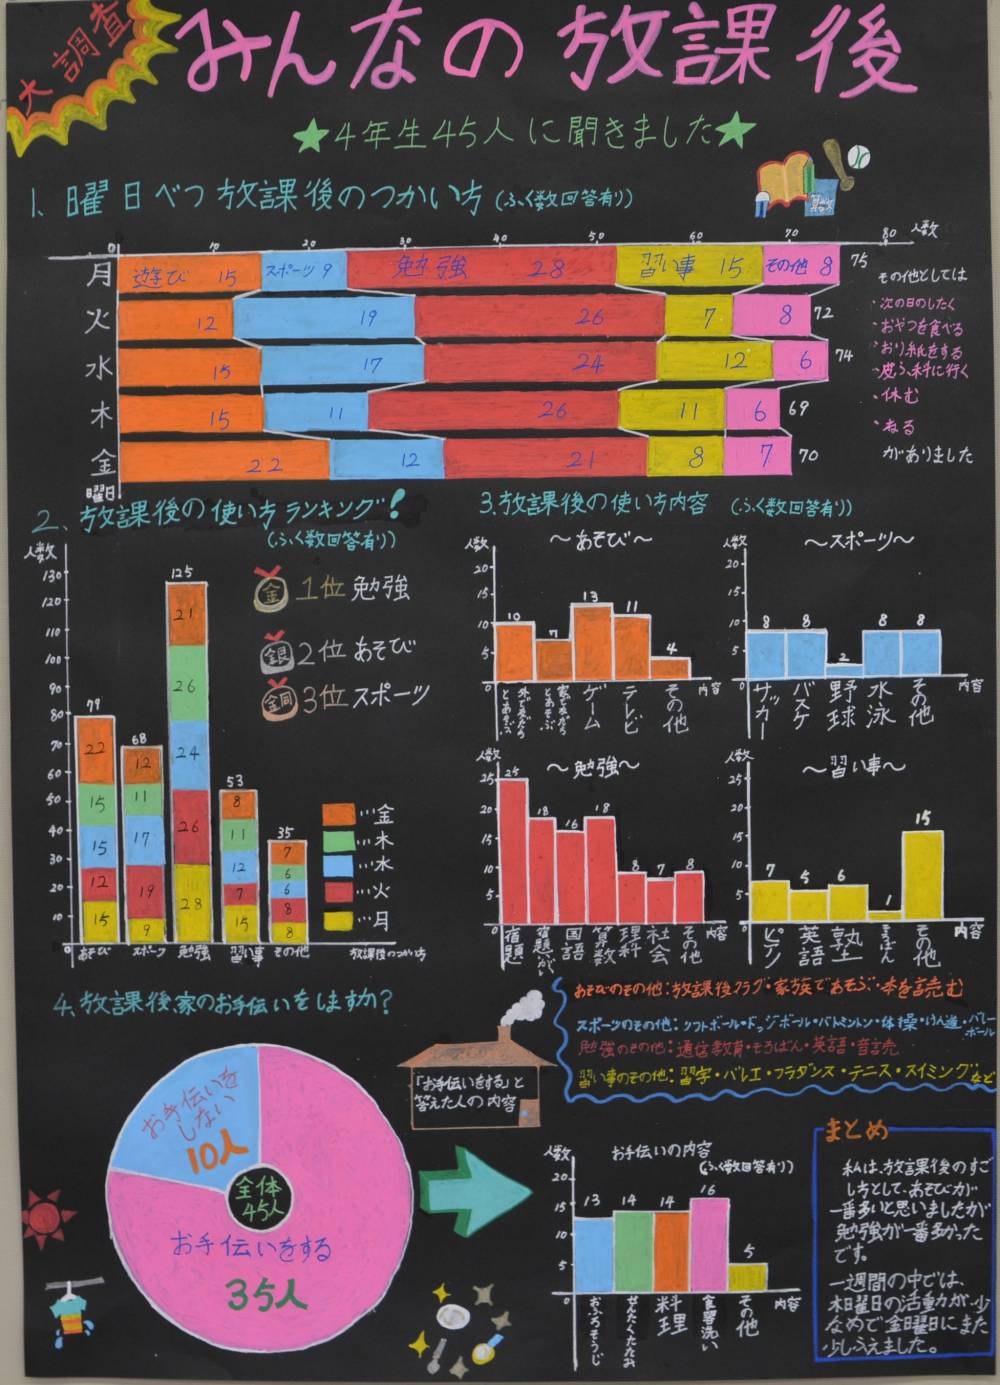 大調査
みんなの放課後
★4年生45人に聞きました★
1、曜日べつ放課後のつかい方(ふく数回答有り)
算数
0 10 20 30 40 50 60 70 80 人数
月 遊び 15 スポーツ 9 勉強 28 習い事 15 その他 8 75
火 12 19 26 7 8 72
水 15 17 24 12 6 74
木 15 11 26 11 6 69
金 22 12 21 8 7 70
曜日
その他としては
・次の日のしたく
・おやつを食べる
・おり紙をする
・皮ふ科に行く
・休む
・ねる
がありました
2、放課後の使い方ランキング!
(ふく数回答有り)
人数
130
120
110
100
90
80
70
60
50
40
30
20
10
0
79 68 125 53 35
22 15 15 12 15
12 11 17 19 9
21 26 24 26 28
8 11 12 7 15
7 6 6 8 8
あそび スポーツ 勉強 習い事 その他 放課後のつかい方
金 1位 勉強
銀 2位 あそび
銅 3位 スポーツ
…金
…木
…水
…火
…月
3.放課後の使い方内容 (ふく数回答有り)
人数 〜あそび〜
20
15
10
5
0
10 7 13 11 4
ゲーム テレビ その他 内容
人数 〜スポーツ〜
20
15
10
5
0
8 8 2 8 8
サッカー バスケ 野球 水泳 その他 内容
人数 〜勉強〜
25
20
15
10
5
0
25 18 16 18 8 7 8
宿題 宿題いがい 国語 算数 理科 社会 その他 内容
人数 〜習い事〜
25
20
15
10
5
0
7 5 6 1 15
ピアノ 英語 塾 そろばん その他 内容
あそびのその他:放課後クラブ・家族であそぶ・本を読む
スポーツのその他:ソフトボール・ドッジボール・バトミントン・体操・けん道・バレーボール
勉強のその他:通信教育・そろばん・英語・音読
習い事のその他:習字・バレエ・フラダンス・テニス・スイミングなど
4.放課後、家のお手伝いをしますか?
お手伝いをしない
10人
全体
45人
お手伝いをする
35人
「お手伝いをする」と
答えた人の内容
人数 お手伝いの内容
(ふく数回答有り)
20
15
10
5
0
13 14 14 16 5
おふろそうじ せんたくたたみ 料理 食器洗い その他 内容
まとめ
私は、放課後のすご
し方として、あそびが
一番多いと思いましたが
勉強が一番多かった
です。
一週間の中では、
木曜日の活動が少
なめで金曜日にまた
少しふえました。